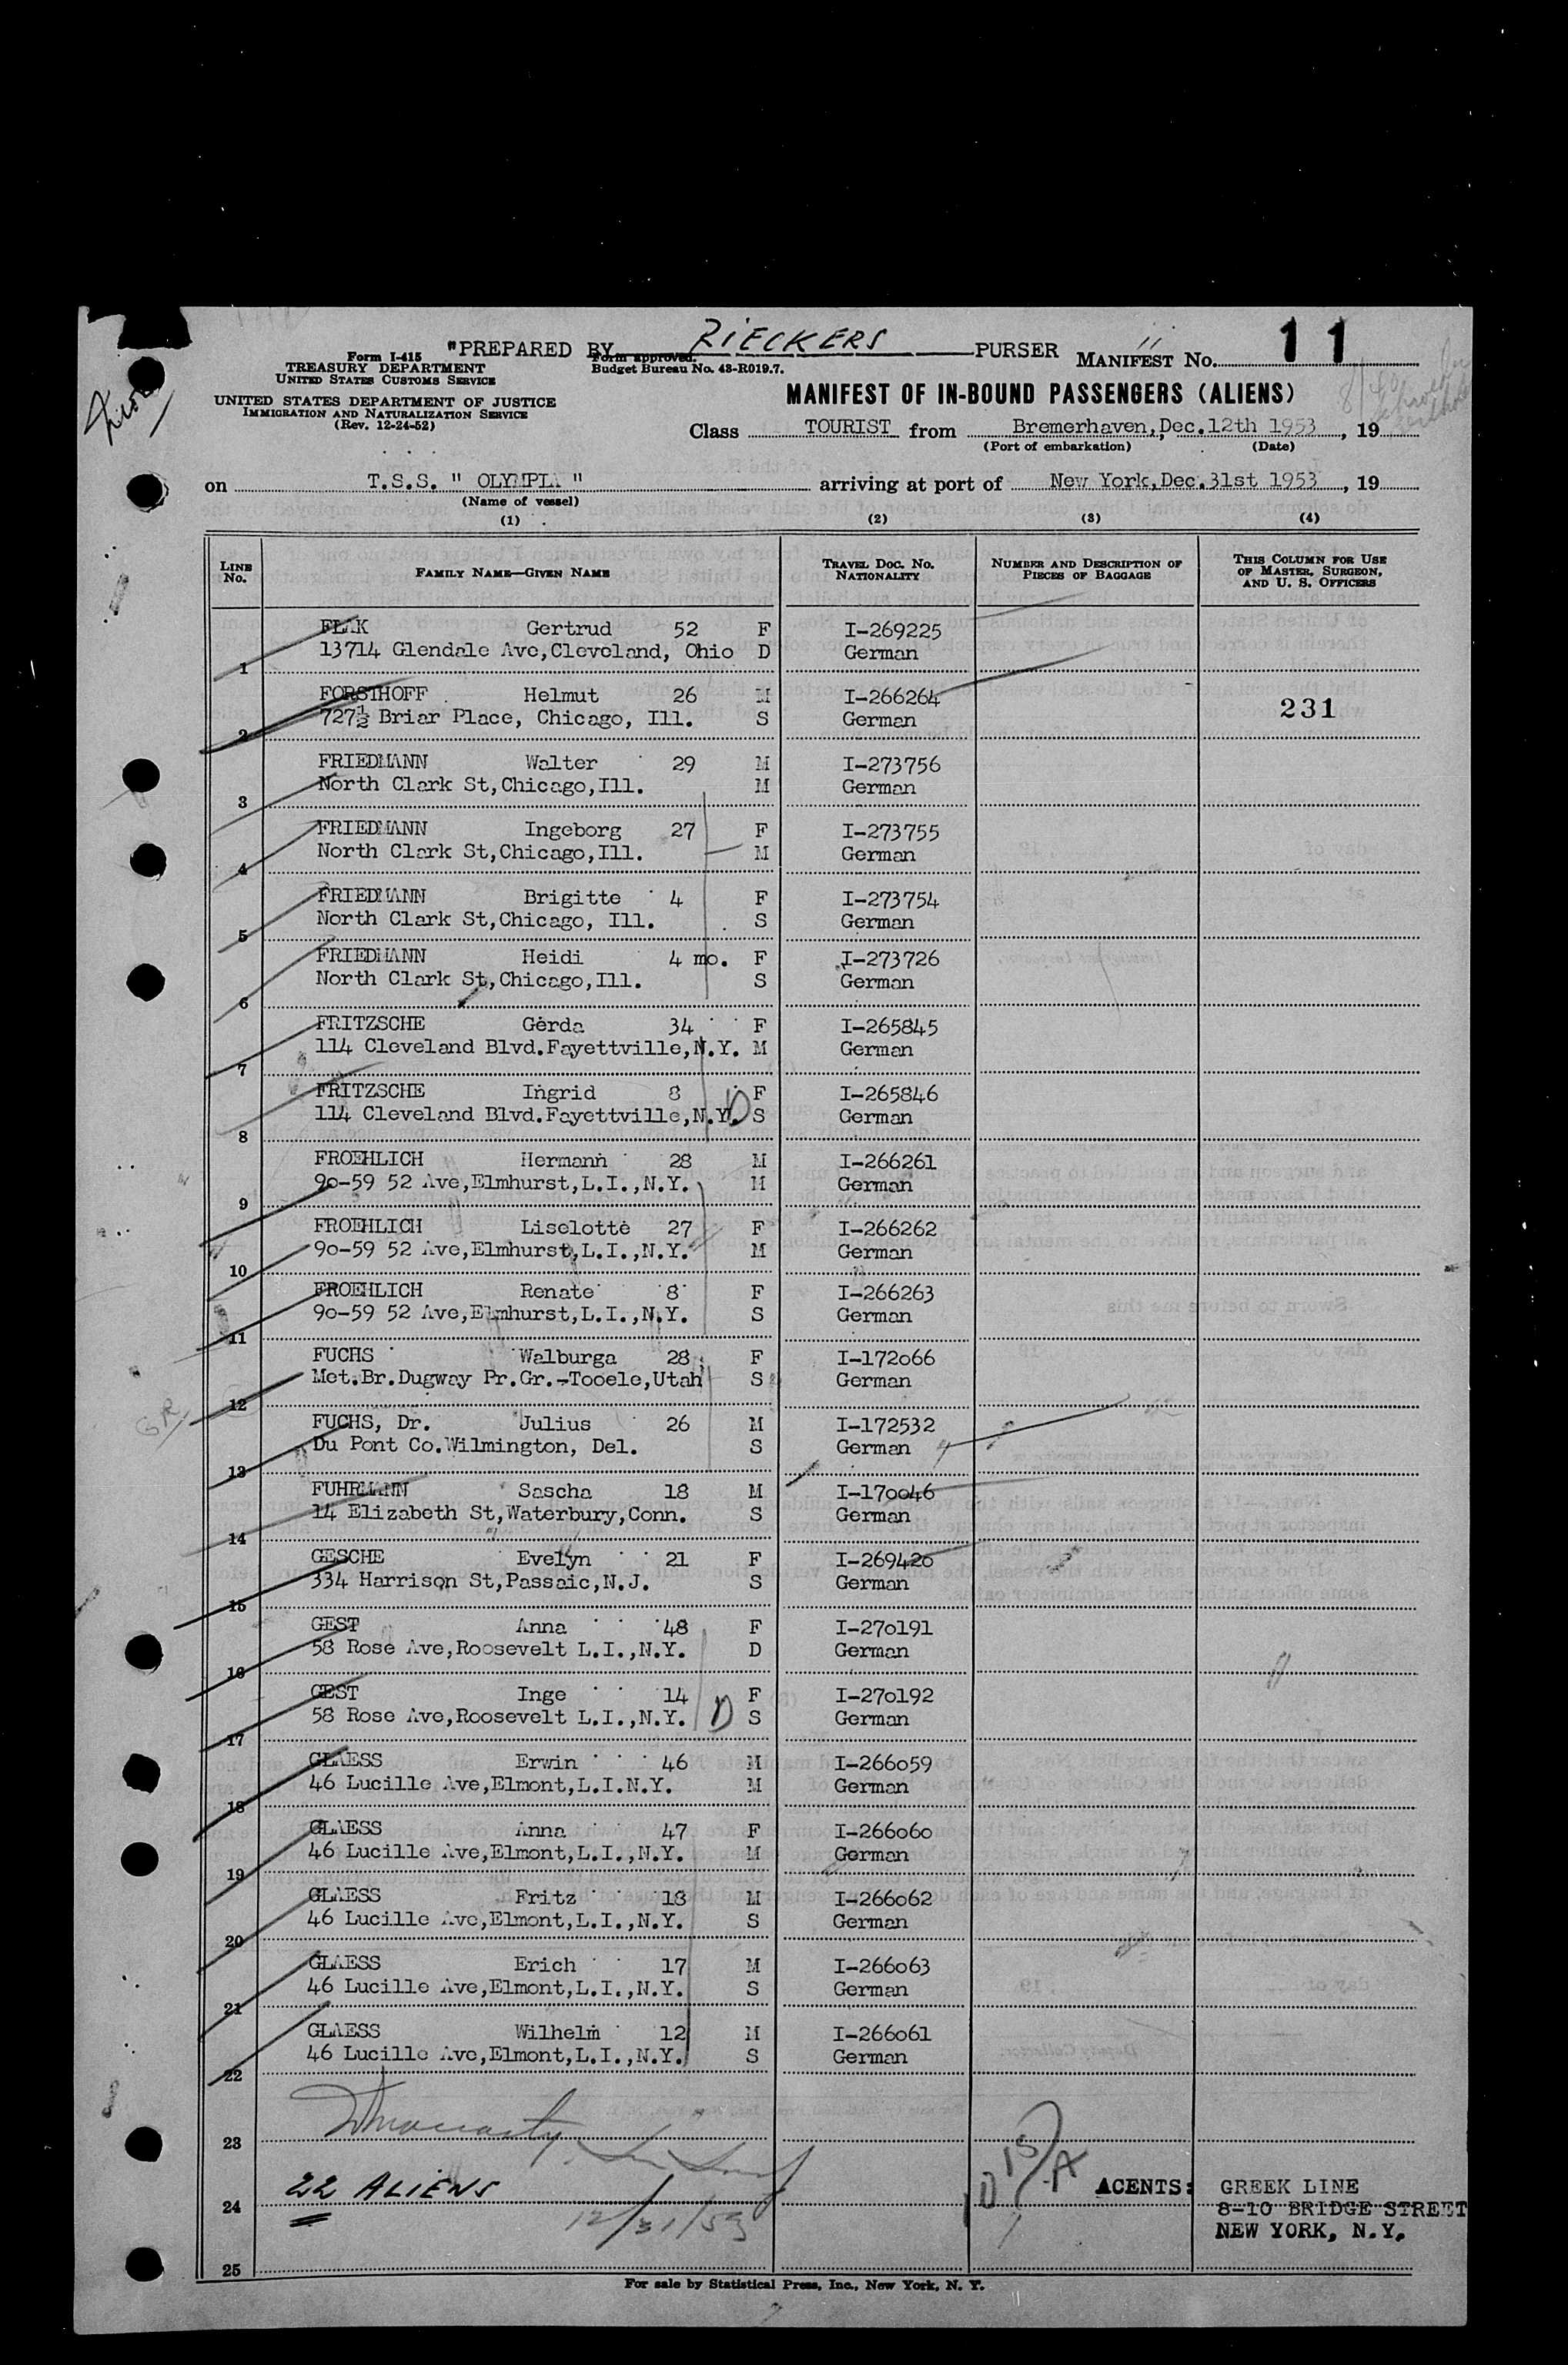 "PREPARED BY RIECKERS PURSER
MANIFEST No. 11
Form I-415
TREASURY DEPARTMENT
UNITED STATES CUSTOMS SERVICE
UNITED STATES DEPARTMENT OF JUSTICE
IMMIGRATION AND NATURALIZATION SERVICE
(Rev. 12-24-52)
Form approved.
Budget Bureau No. 43-R019.7.
MANIFEST OF IN-BOUND PASSENGERS (ALIENS)
Class TOURIST from Bremerhaven, Dec.12th 1953, 19
(Port of embarkation) (Date)
on T.S.S. " OLYMPIA " arriving at port of New York,Dec.31st 1953, 19
(Name of vessel)
(1) (2) (3) (4)
LINE No. FAMILY NAME—GIVEN NAME TRAVEL DOC. NO. NATIONALITY NUMBER AND DESCRIPTION OF PIECES OF BAGGAGE THIS COLUMN FOR USE OF MASTER, SURGEON, AND U. S. OFFICERS
FLAK Gertrud 52 F I-269225
1 13714 Glendale Ave,Cleveland, Ohio D German
FORSTHOFF Helmut 26 M I-266264
2 727½ Briar Place, Chicago, Ill. S German 231
FRIEDMANN Walter 29 M I-273756
3 North Clark St,Chicago,Ill. M German
FRIEDMANN Ingeborg 27 F I-273755
4 North Clark St,Chicago,Ill. M German
FRIEDMANN Brigitte 4 F I-273754
5 North Clark St,Chicago, Ill. S German
FRIEDMANN Heidi 4 mo. F I-273726
6 North Clark St,Chicago,Ill. S German
FRITZSCHE Gerda 34 F I-265845
7 114 Cleveland Blvd.Fayettville,N.Y. M German
FRITZSCHE Ingrid 8 F I-265846
8 114 Cleveland Blvd.Fayettville,N.Y. D S German
FROEHLICH Hermann 28 M I-266261
9 90-59 52 Ave,Elmhurst,L.I.,N.Y. M German
FROEHLICH Liselotte 27 F I-266262
10 90-59 52 Ave,Elmhurst,L.I.,N.Y. M German
FROEHLICH Renate 8 F I-266263
11 90-59 52 Ave,Elmhurst,L.I.,N.Y. S German
FUCHS Walburga 28 F I-172066
12 Met.Br.Dugway Pr.Gr.-Tooele,Utah S German
GR
FUCHS, Dr. Julius 26 M I-172532
13 Du Pont Co.Wilmington, Del. S German
FUHRMANN Sascha 18 M I-170046
14 14 Elizabeth St,Waterbury,Conn. S German
GESCHE Evelyn 21 F I-269420
15 334 Harrison St,Passaic,N.J. S German
GEST Anna 48 F I-270191
16 58 Rose Ave,Roosevelt L.I.,N.Y. D German
GEST Inge 14 F I-270192
17 58 Rose Ave,Roosevelt L.I.,N.Y. D S German
GLAESS Erwin 46 M I-266059
18 46 Lucille Ave,Elmont,L.I.N.Y. M German
GLAESS Anna 47 F I-266060
19 46 Lucille Ave,Elmont,L.I.,N.Y. M German
GLAESS Fritz 18 M I-266062
20 46 Lucille Ave,Elmont,L.I.,N.Y. S German
GLAESS Erich 17 M I-266063
21 46 Lucille Ave,Elmont,L.I.,N.Y. S German
GLAESS Wilhelm 12 M I-266061
22 46 Lucille Ave,Elmont,L.I.,N.Y. S German
23
24 22 ALIENS 12/31/53
AGENTS: GREEK LINE
8-10 BRIDGE STREET
NEW YORK, N.Y.
25
For sale by Statistical Press, Inc., New York, N. Y.